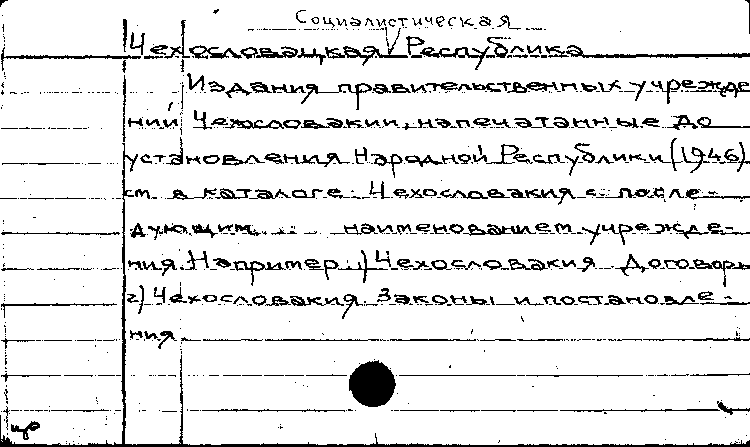 Социалистическая
Чехословацкая Республика
Издания правительственных учрежде
ний Чехословакии, напечатанные до
установления Народной Республики (1946)
см. в каталоге: Чехословакия с после-
дующим наименованием учрежде-
ния. Например: 1) Чехословакия Договоры
2) Чехословакия. Законы и постановле-
ния.